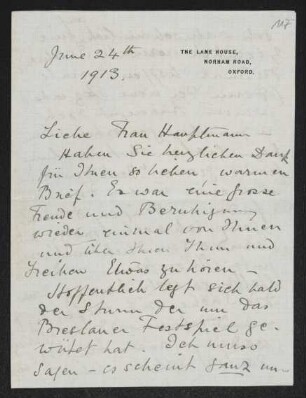 June 24th
1913.
THE LANE HOUSE,
NORHAM ROAD,
OXFORD.
Liebe Frau Hauptmann –
Haben Sie herzlichen Dank
für Ihren so lieben, warmen
Brief. Es war eine grosse
Freude und Beruhigung
wieder einmal von Ihnen
und über Ihren Ihm und
Ivo Etwas zu hören –
Hoffentlich legt sich bald
der Sturm der um das
Breslauer Festspiel ge-
wütet hat. Ich muss
sagen – es scheint ganz un-